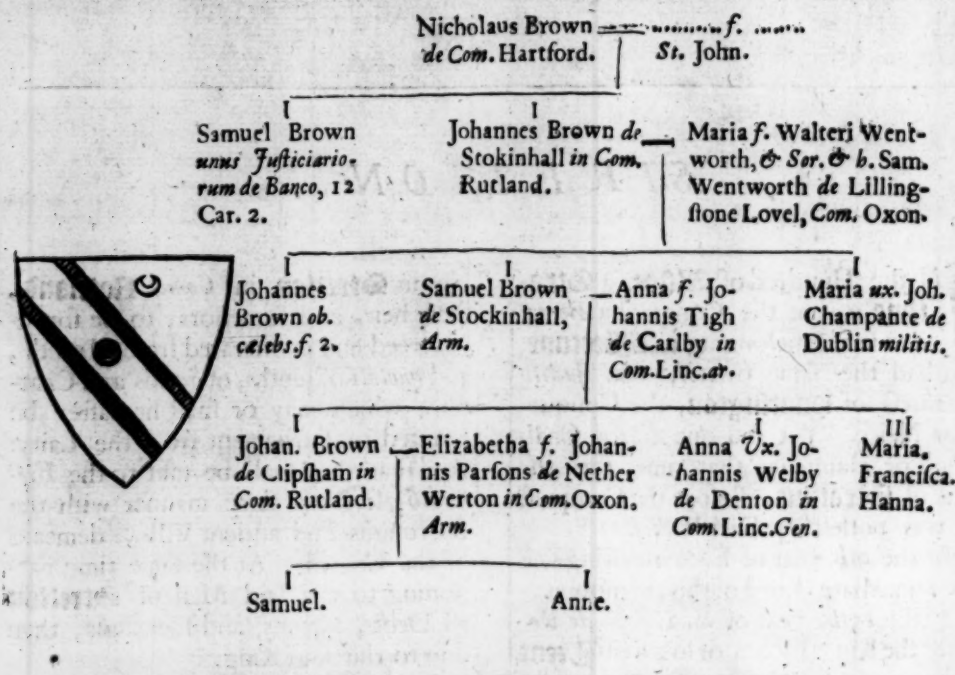 Nicholaus Brown f.
de Com. Hartford. St. John.
Samuel Brown
unus Juſticiario-
rum de Banco, 12
Car. 2.
Johannes Brown de
Stokinhall in Com.
Rutland.
Maria f. Walteri Went-
worth, & Sor. & h. Sam.
Wentworth de Lilling-
ſtone Lovel, Com. Oxon.
Johannes
Brown ob.
cælebs ſ. 2.
Samuel Brown
de Stockinhall,
Arm.
Anna f. Jo-
hannis Tigh
de Carlby in
Com. Linc. ar.
Maria ux. Joh.
Champante de
Dublin militis.
Johan. Brown
de Clipſham in
Com. Rutland.
Elizabetha f. Johan-
nis Parſons de Nether
Werton in Com. Oxon.
Arm.
Anna Ux. Jo-
hannis Welby
de Denton in
Com. Linc. Gen.
Maria.
Franciſca.
Hanna.
Samuel.
Anne.